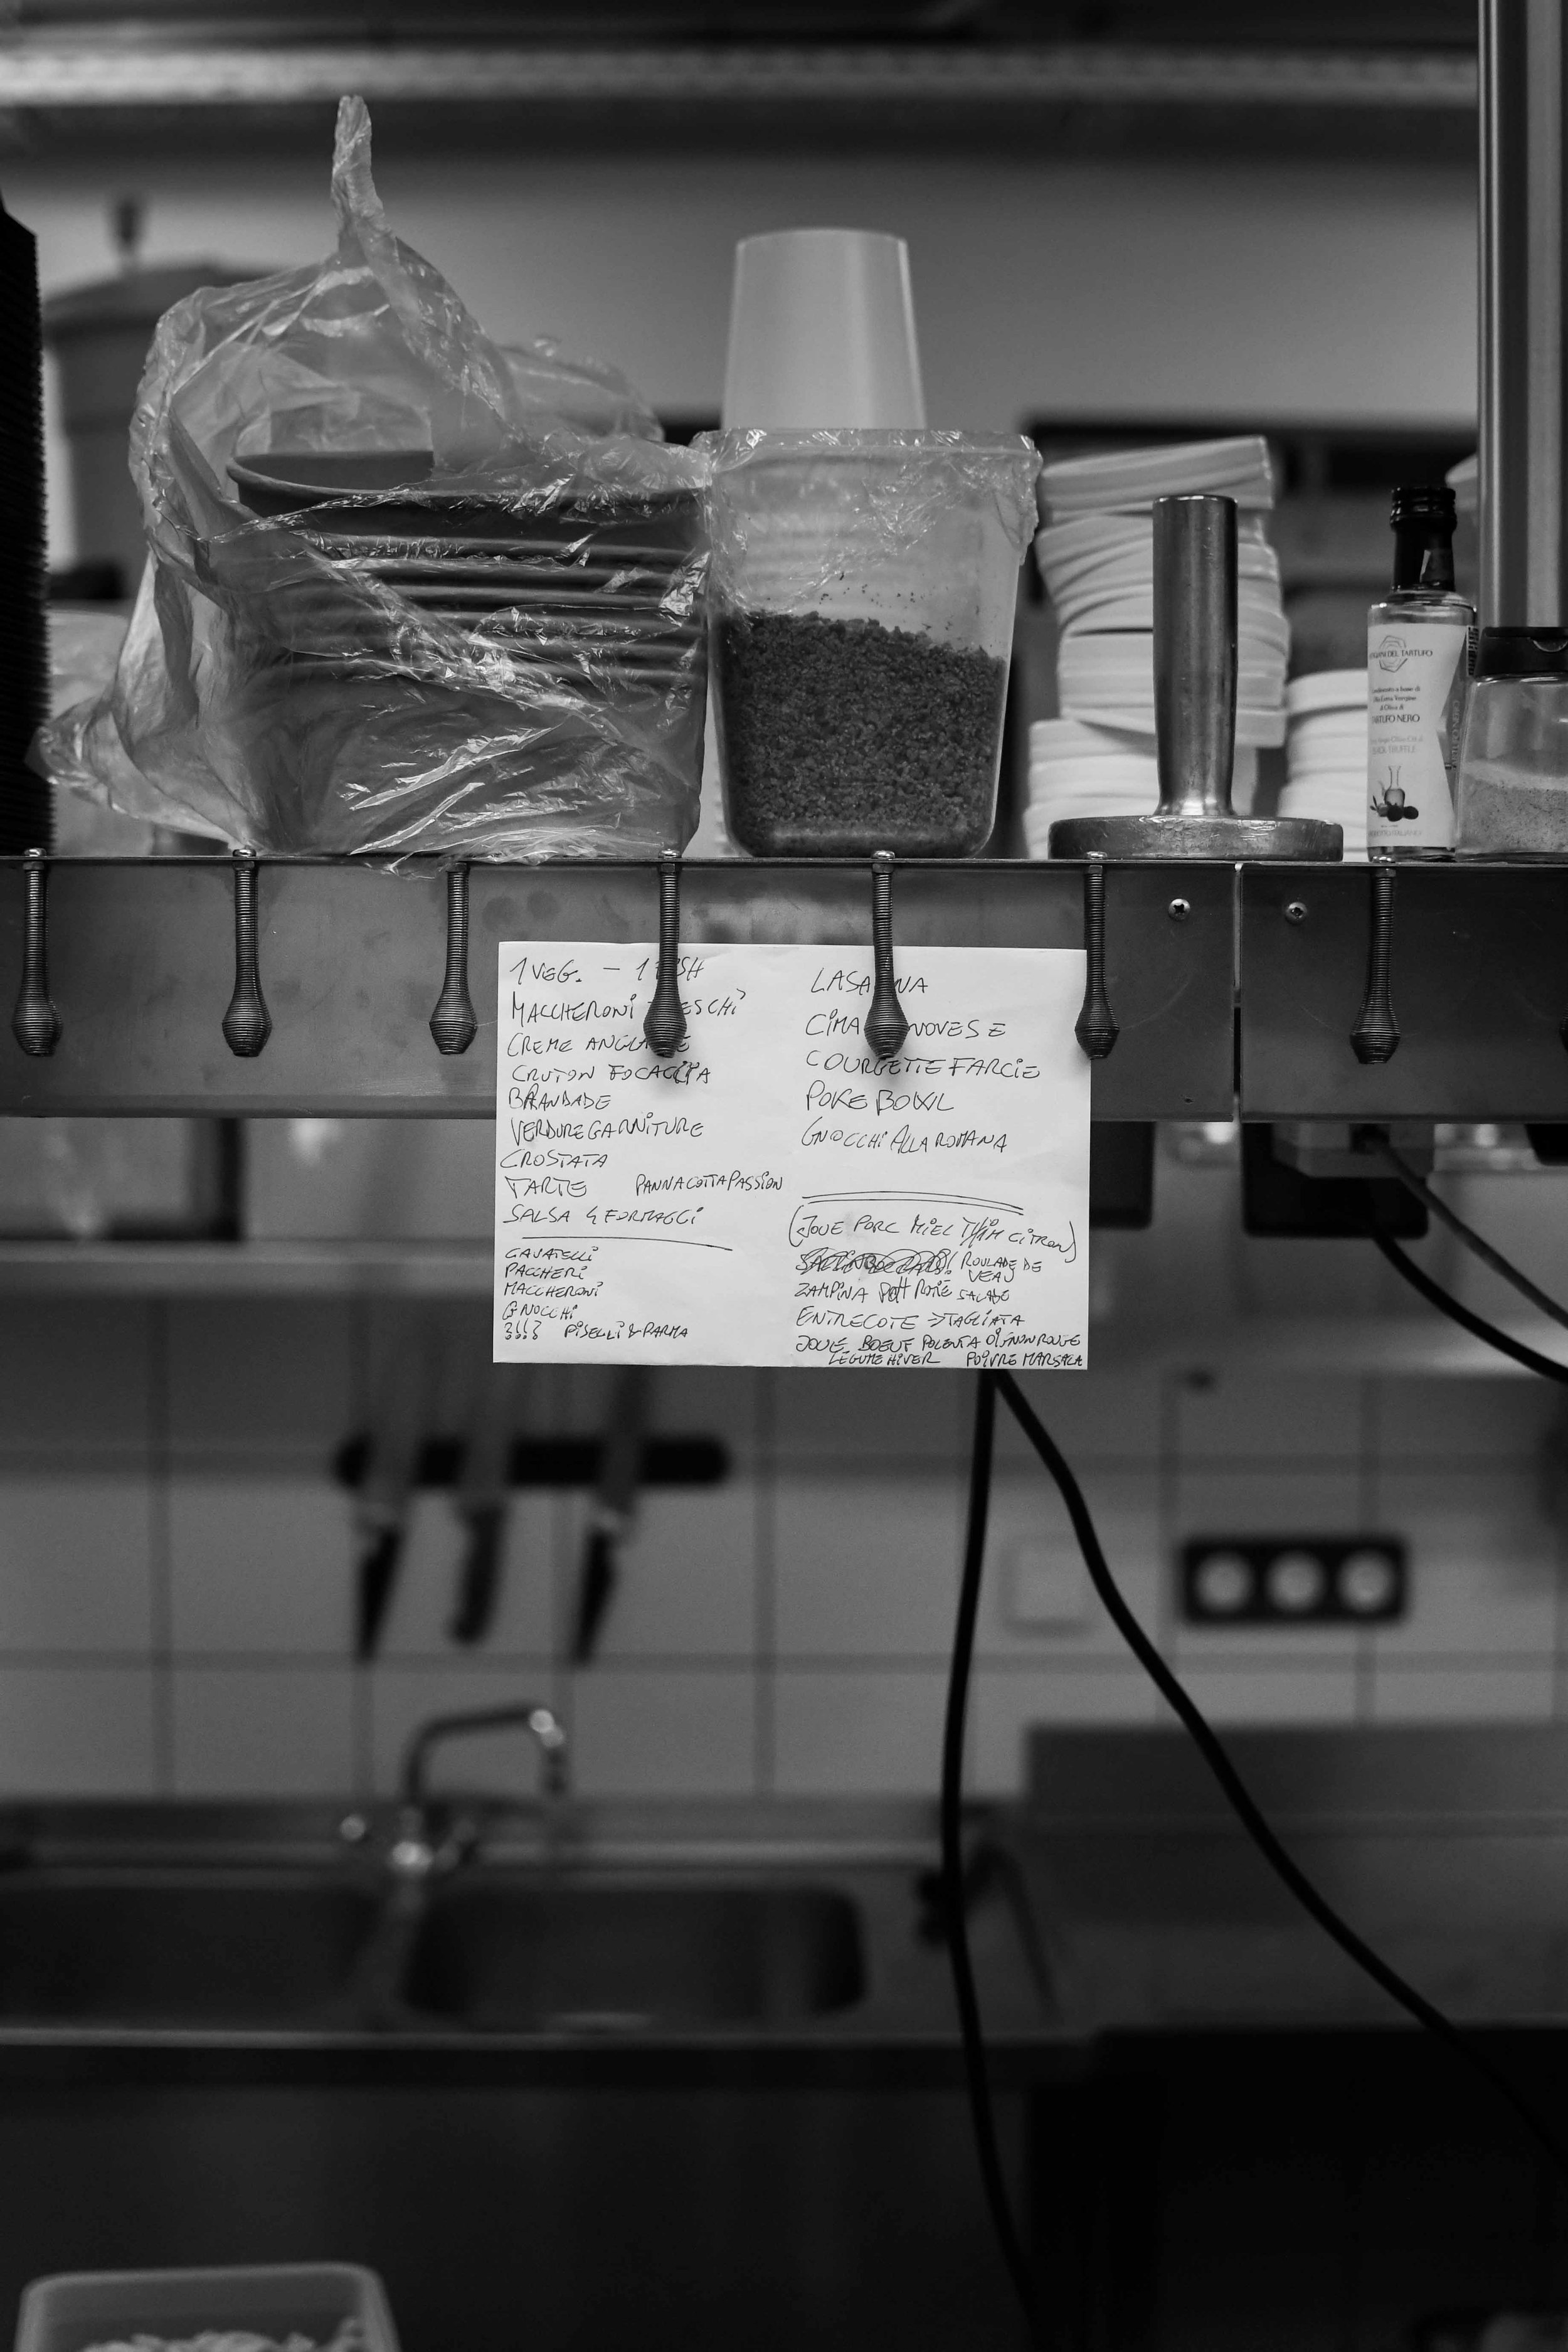 1 VEG. - 1
MACCHERONI ESCHI
CREME
CRUTON FOCACCIA
BRANDADE
VERDURE GARNITURE
CROSTATA
TARTE PANNACOTTA PASSION
SALSA 4 FORMAGGI
CAVATELLI
PACCHERI
MACCHERONI
GNOCCHI
PISELLI & PARMA
LASA NA
CIMA NOVESE
COURGETTE FARCIE
POKE BOWL
GNOCCHI ALLA ROMANA
(JOUE PORC MIEL THIM CITRON)
ROULADE DE
VEAU
ZAMPINA ROTIE SALADE
ENTRECOTE → TAGLIATA
JOUE BOEUF POLENTA OIGNON ROUGE
LEGUME HIVER POIVRE MARSALA
DEL TARTUFO
a base di
Extra Vergine
di Oliva di
TARTUFO NERO
TRUFFLE